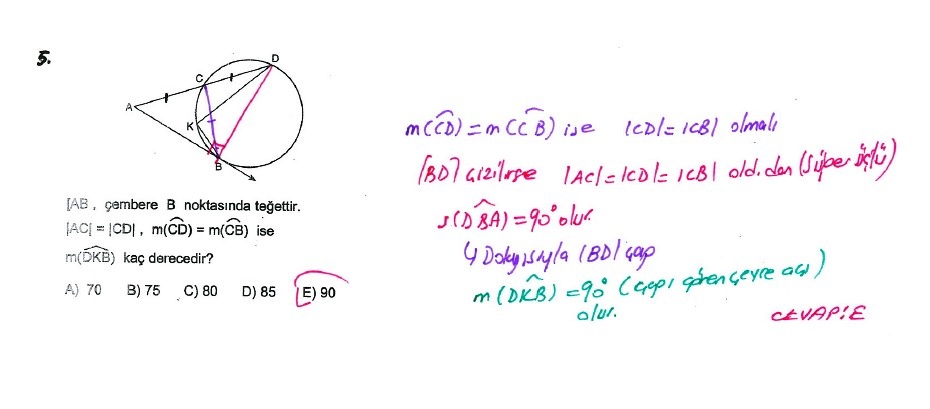 5.
D
C
A
K
B
[AB , çembere B noktasında teğettir.
|AC| = |CD| , m(CD) = m(CB) ise
m(DKB) kaç derecedir?
A) 70 B) 75 C) 80 D) 85 E) 90
m(CD) = m(CB) ise |CD| = |CB| olmalı
[BD] çizilirse |AC| = |CD| = |CB| old.dan (Süper Üçlü)
s(DBA) = 90° olur.
↳ Dolayısıyla |BD| çap
m(DKB) = 90° (çapı gören çevre açı)
olur.
CEVAP: E